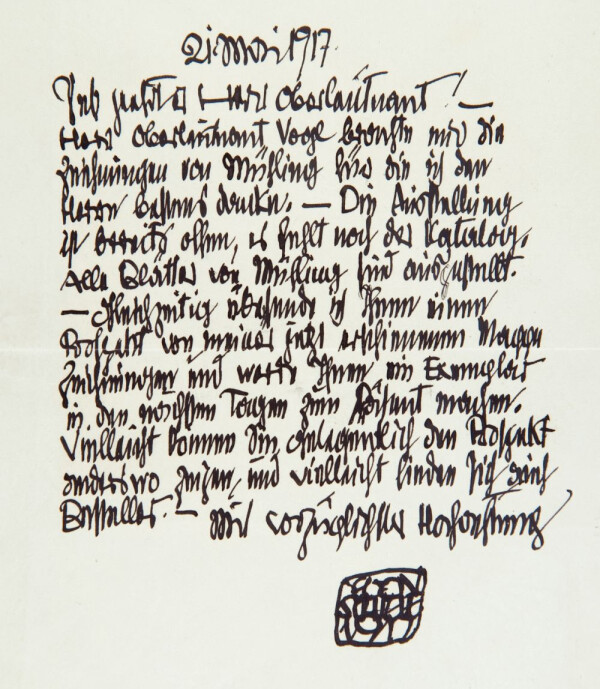 21. Mai 1917.
Sehr geehrter Herr Oberleutnant! —
Herr Oberleutnant Vogl brachte mir die
Zeichnungen von Mühling für die ich den
Herrn bestens danke. — Die Ausstellung
ist bereits offen, es fehlt noch der Katalog.
Alle Blätter von Mühling sind ausgestellt.
— Gleichzeitig übersende ich Ihnen einen
Prospekt von meiner jetzt erschienenen Mappe
Zeichnungen und werde Ihnen ein Exemplar
in den nächsten Tagen zum Präsent machen.
Vielleicht können Sie gelegentlich den Prospekt
anderswo zeigen, und vielleicht finden sich auch
Besteller. — Mit vorzüglichster Hochachtung
EGON
SCHIELE
1917